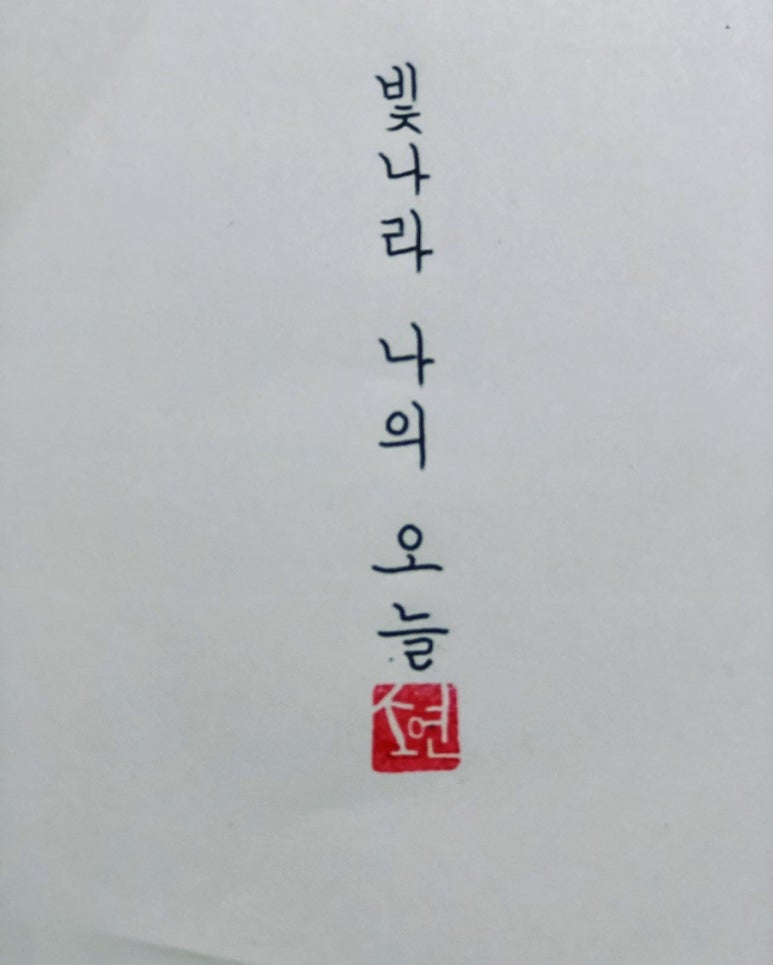 빛나라 나의 오늘
소연